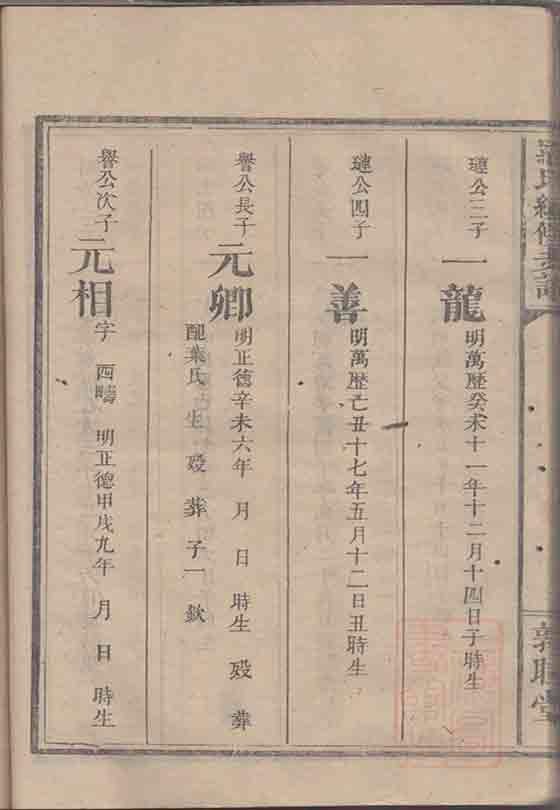 氏續修支譜
敦睦堂
璉公三子
一龍
明萬歷癸未十一年十二月十四日子時生
璉公四子
一善
明萬歷己丑十七年五月十二日丑時生
譽公長子
元卿
明正德辛未六年 月 日 時生 歿 葬
配葉氏 生 歿 葬 子一 欽
譽公次子
元相
字 西疇 明正德甲戌九年 月 日 時生